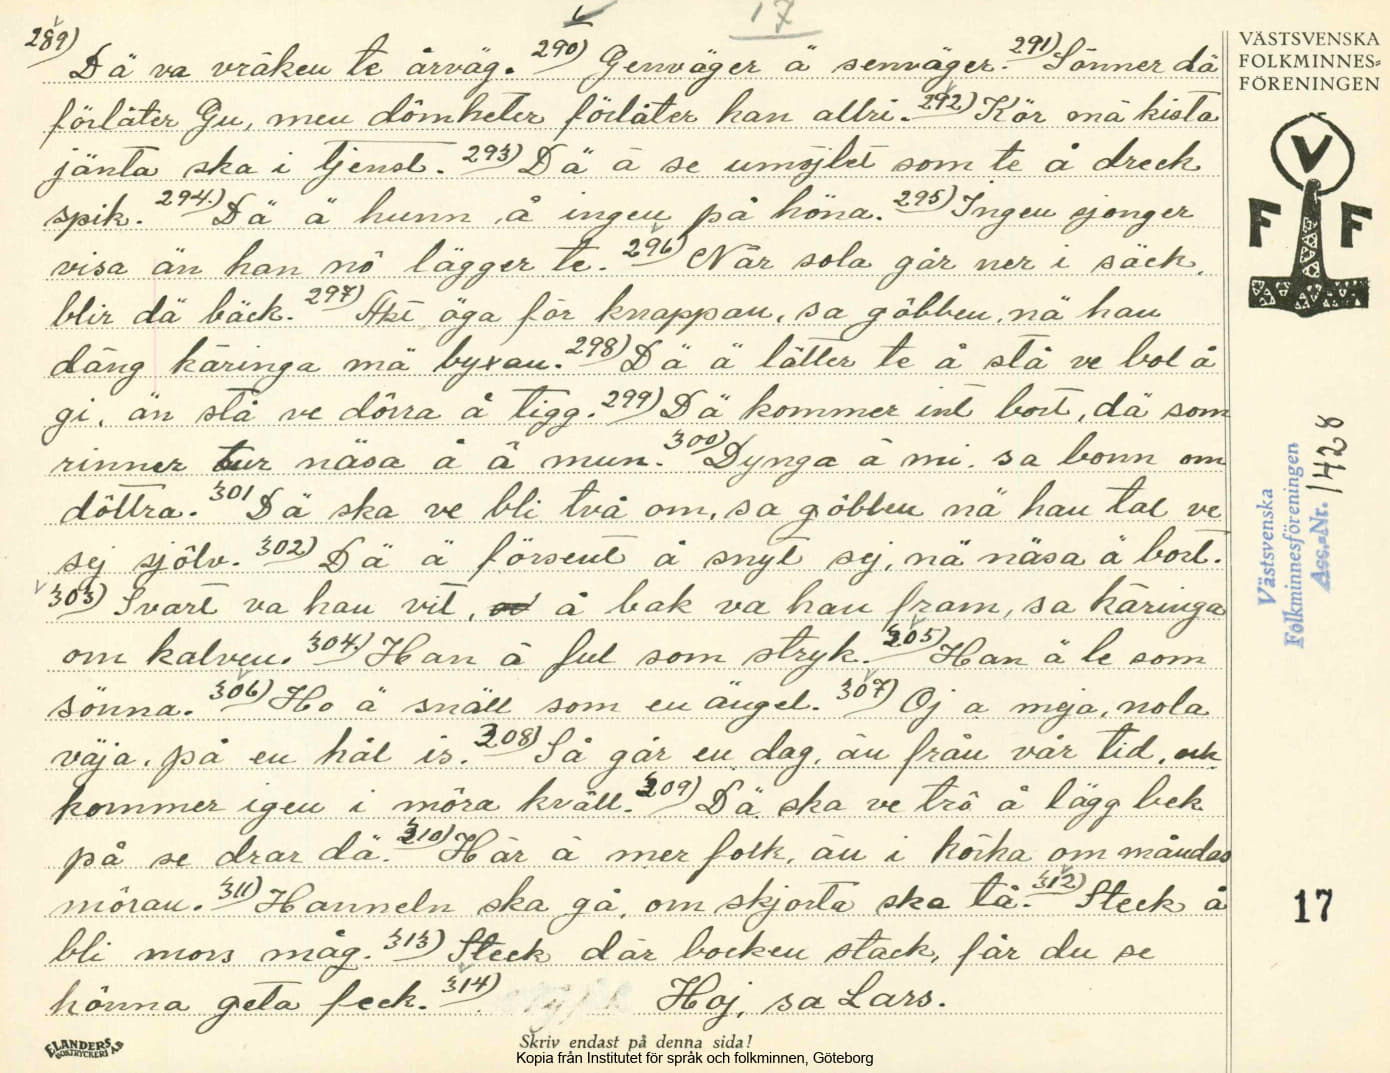 17
289) Dä va vräken te årväg. 290) Genväger ä senväger. 291) Sönner då
förlåter Gu, men dômheter förlåter han allri. 292) Kör mä kista
jänta ska i tjenst. 293) Dä ä se umöjlet som te å dreck
spik. 294.) Dä ä hunn å ingen på höna. 295) Ingen sjonger
visa än han nô lägger te. 296) När sola går ner i säck,
blir dä bäck. 297) öga för knappan, sa gôbben, nä han
däng käringa mä byxan. 298) Dä ä lätter te å stå ve bol å
gi, än stå ve dôrra å tigg. 299) Dä kommer int bort, dä som
rinner ur näsa å å mun. 300) Dynga ä mi, sa bonn om
dôttra. 301 Dä ska ve bli två om, sa gôbben nä han tal ve
sej sjôlv. 302) Dä ä försent å snyt sej, nä näsa ä bort.
303) Svart va han vit, å bak va han fram, sa käringa
om kalven. 304.) Han ä ful som stryk. 305) Han ä le som
sönna. 306) Ho ä snäll som en ängel. 307) Oj a meja, nola
väja, på en hål is. 308) Så går en dag, än från vår tid, och
kommer igen i môra kväll. 309) Dä ska ve trô å lägg bek
på se drar dä. 310) Här ä mer folk, än i körka om måndas
môran. 311) Hanneln ska gå, om skjorta ska tå. 312) Steck å
bli mors måg. 313) Steck där bocken stack, får du se
hônna geta feck. 314) Hoj, sa Lars.
VÄSTSVENSKA
FOLKMINNES-
FÖRENINGEN
V
F F
Västsvenska
Folkminnesföreningen
Acc.-Nr. 1428
17
ELANDERS
BOKTRYCKERI AB
Skriv endast på denna sida!
Kopia från Institutet för språk och folkminnen, Göteborg